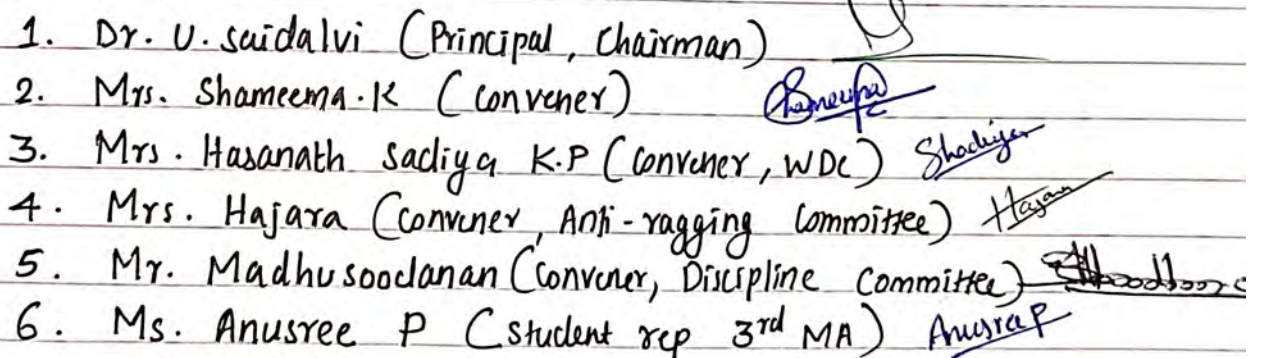 1. Dr. U. saidalvi (Principal, Chairman)
2. Mrs. Shameema.K (Convener) Shameema
3. Mrs. Hasanath sadiya K.P (Convener, WDC) Shadiya
4. Mrs. Hajara (Convener, Anti-ragging Committee) Hajara
5. Mr. Madhusoodanan (Convener, Discipline Committee)
6. Ms. Anusree P (student rep 3rd MA) Anusree P